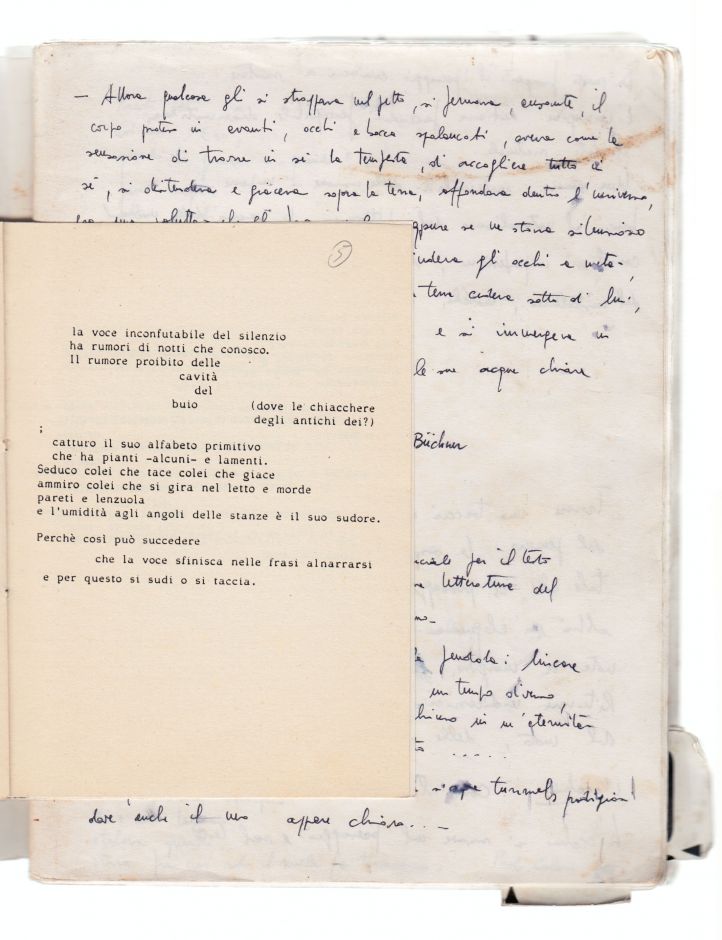 — Allora qualcosa gli si strappava nel petto, si fermava, ansante, il
corpo proteso in avanti, occhi e bocca spalancati, aveva come la
sensazione di trarre in sé la tempesta, di accogliere tutto in
sé, si distendeva e giaceva sopra la terra, affondava dentro l'universo,
oppure se ne stava silenzioso
gli occhi e
terra cedeva sotto di lui,
e si immergeva in
le sue acque chiare
Büchner
per il testo
letteratura del
pendola: lineare
un tempo diverso,
in un'eternità
.....
si apre tunnels prodigiosi
dove anche il nero appare chiaro...—
5
la voce inconfutabile del silenzio
ha rumori di notti che conosco.
Il rumore proibito delle
cavità
del
buio (dove le chiacchere
degli antichi dei?)
;
catturo il suo alfabeto primitivo
che ha pianti -alcuni- e lamenti.
Seduco colei che tace colei che giace
ammiro colei che si gira nel letto e morde
pareti e lenzuola
e l'umidità agli angoli delle stanze è il suo sudore.
Perchè così può succedere
che la voce sfinisca nelle frasi alnarrarsi
e per questo si sudi o si taccia.